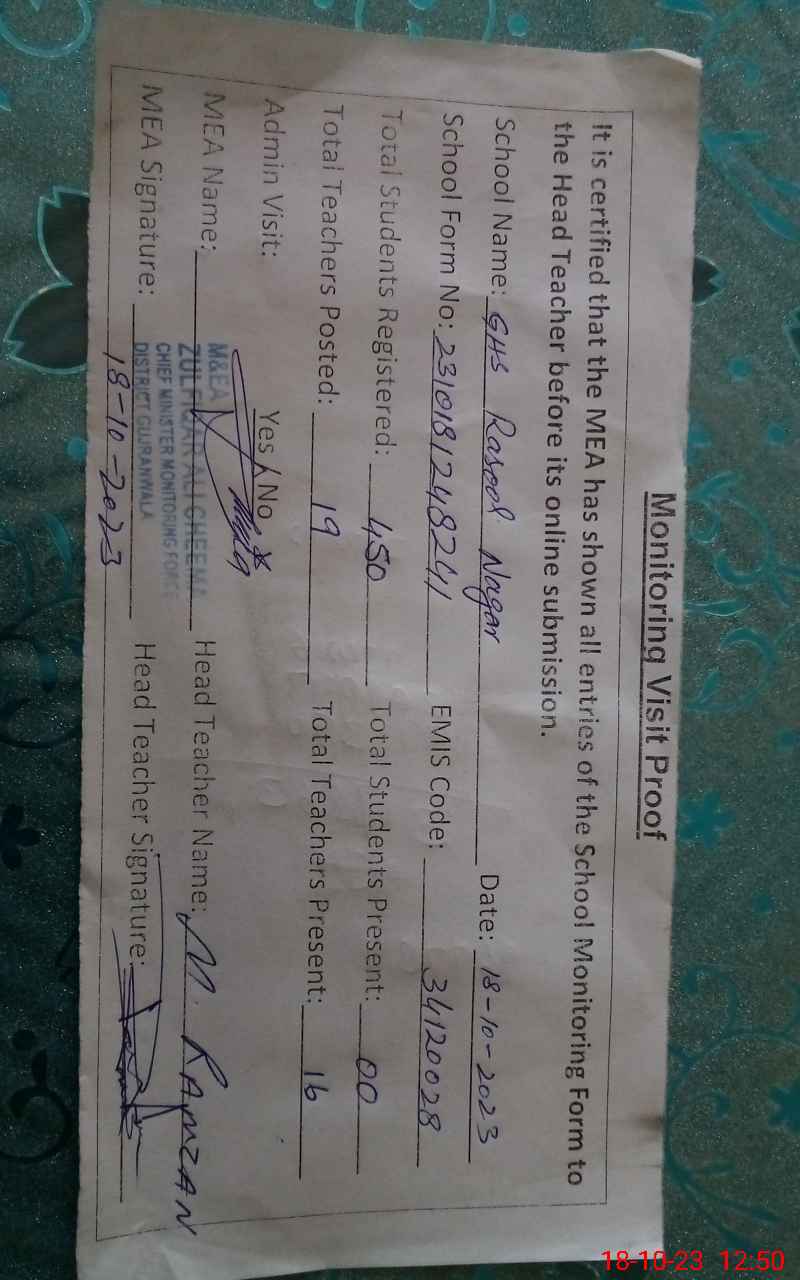 Monitoring Visit Proof
It is certified that the MEA has shown all entries of the School Monitoring Form to
the Head Teacher before its online submission.
School Name: GHS Rasool Nagar Date: 18-10-2023
School Form No: 2310181248241 EMIS Code: 34120028
Total Students Registered: 450 Total Students Present: 00
Total Teachers Posted: 19 Total Teachers Present: 16
Admin Visit: Yes / No
M&EA
MEA Name: ZULFIQAR ALI CHEEMA Head Teacher Name: M. RAMZAN
CHIEF MINISTER MONITORING FORCE
MEA Signature: DISTRICT GUJRANWALA Head Teacher Signature:
18-10-2023
18-10-23 12:50